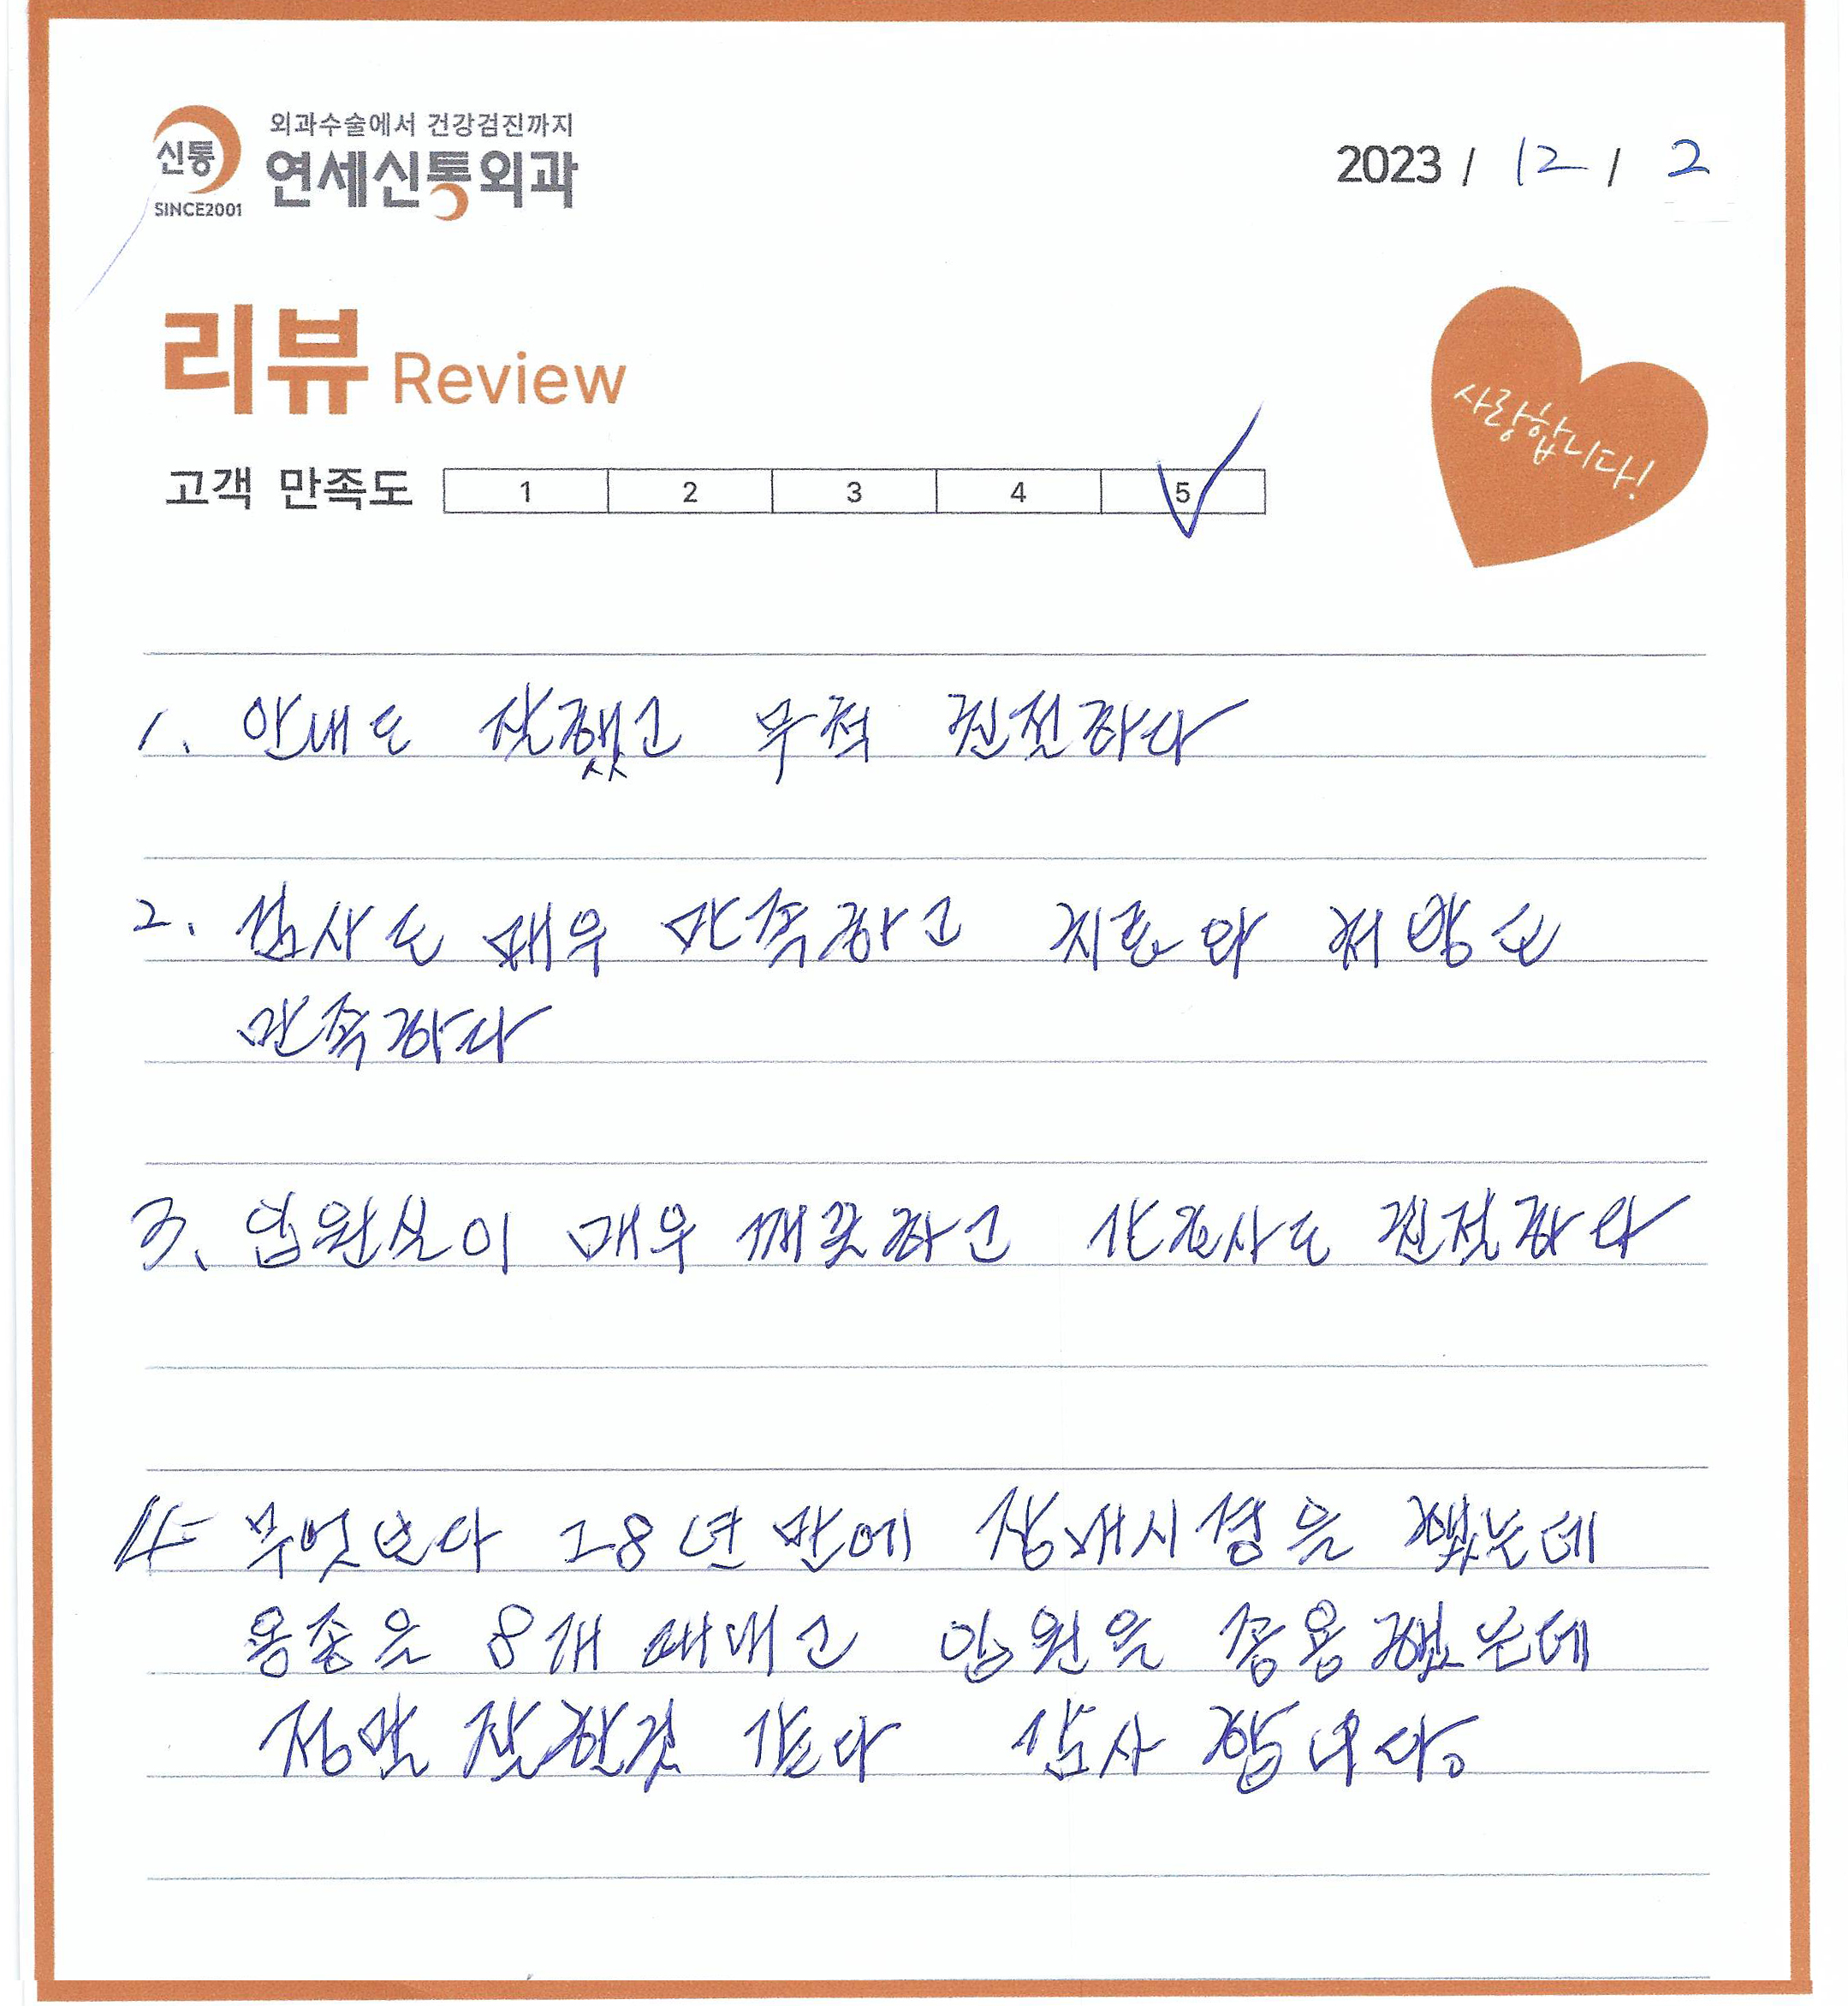 외과수술에서 건강검진까지
신통
연세신통외과
SINCE2001
2023 / 12 / 2
리뷰 Review
사랑합니다!
고객 만족도 1 2 3 4 5
1. 안내도 잘했고 무척 친절하다
2. 검사도 매우 만족하고 치료와 처방도
만족하다
3. 입원실이 매우 깨끗하고 간호사도 친절하다
4. 무엇보다 28년 만에 장내시경을 했는데
용종을 8개 떼내고 입원을 했는데
정말 잘한것 같다 감사합니다.